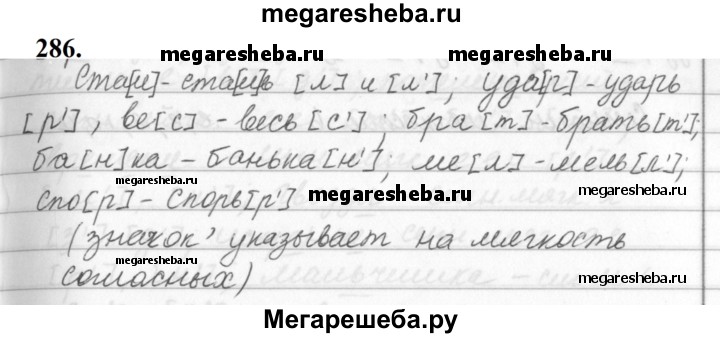 megaresheba.ru
286.
megaresheba.ru megaresheba.ru
Ста[л] - сталь [л] и [л']; уда[р] - ударь
[р'], ве[с] - весь [с']; бра[т] - брать[т'];
ба[н]ка - банька[н'], ме[л] - мель[л'];
megaresheba.ru megaresheba.ru
спо[р] - спорь[р'] megaresheba.ru
(значок ' указывает на мягкость
согласных)
megaresheba.ru megaresheba.ru
Мегарешеба.ру